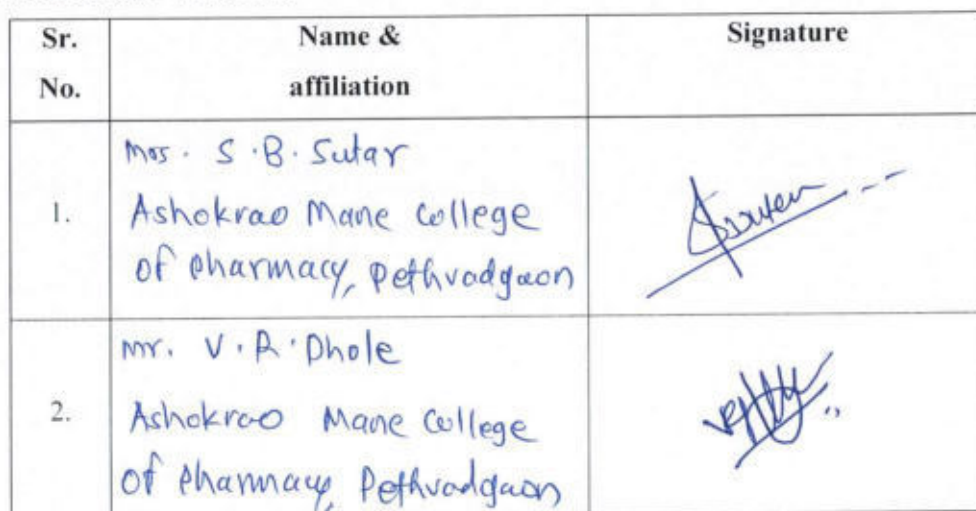 Sr. No.
Name & affiliation
Signature
1.
Mrs. S.B. Sutar
Ashokrao Mane College
of pharmacy, Pethvadgaon
2.
mr. V.R. Dhole
Ashokrao Mane College
of pharmacy, Pethvadgaon